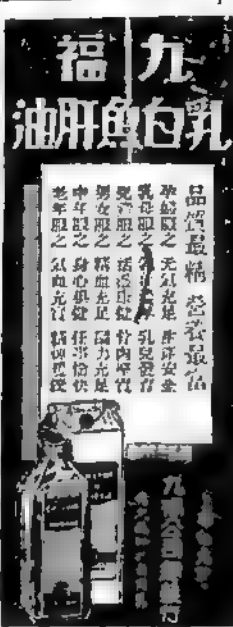 九福
乳白魚肝油
品質最精 營養最富
孕婦服之 元氣充足 生產安全
乳母服之 乳兒發育
兒童服之 活潑康健 骨肉堅實
男女服之 精血充足 腦力充足
中年服之 身心俱健 任事愉快
老年服之 氣血充實 精神矍鑠
九福公司